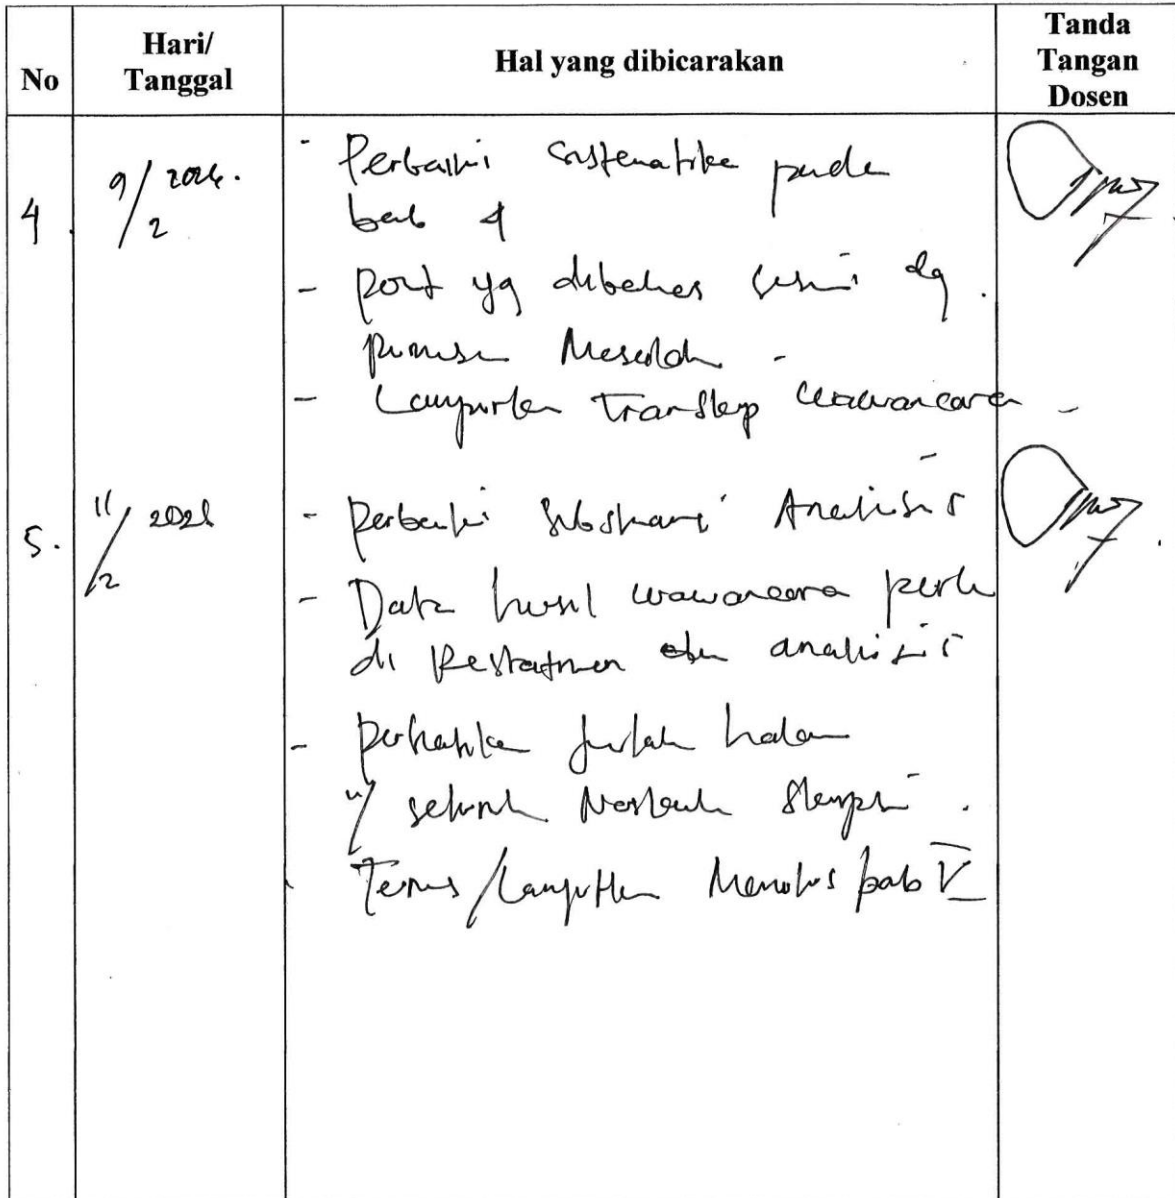 No
Hari/
Tanggal
Hal yang dibicarakan
Tanda
Tangan
Dosen
4
9/2
- Perbaiki sistematika pada
bab 4
- yg dibahas sesuai dg
Masalah -
- Lampirkan Transkrip wawancara -
5.
11/2
- Perbaiki substansi Analisis
- Data hasil wawancara perlu
di analisis
- perhatikan jumlah halaman
u/ seluruh Naskah skripsi.
Terus/Lanjutkan Menulis bab V